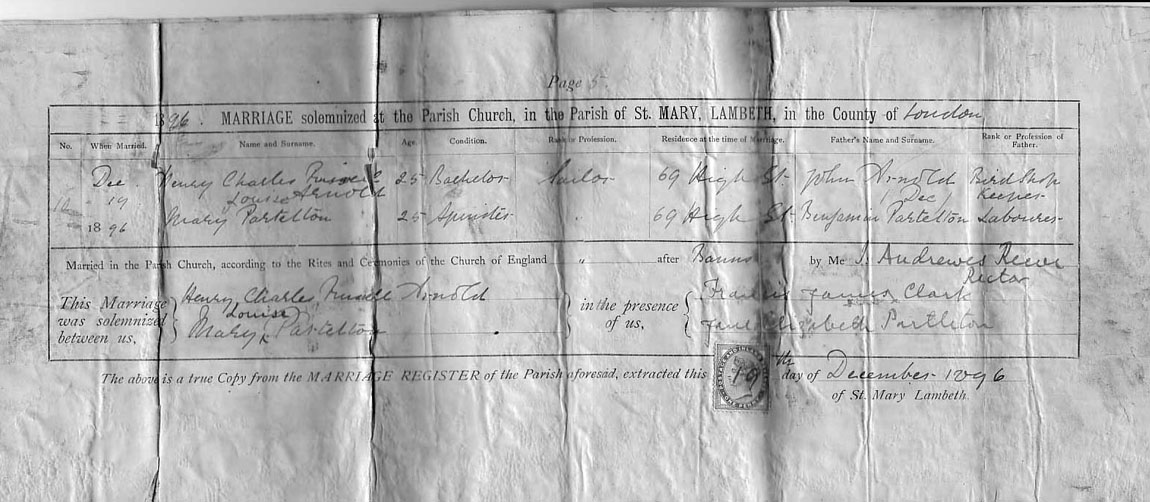 Page 5
1896. MARRIAGE solemnized at the Parish Church, in the Parish of St. MARY, LAMBETH, in the County of London
No. When Married. Name and Surname. Age. Condition. Rank or Profession. Residence at the time of Marriage. Father's Name and Surname. Rank or Profession of Father.
Dec Henry Charles Russell 25 Bachelor 69 High St. John Arnold Bird Shop
19 Louise Arnold Dec Keeper
1896 Mary Partelton 25 Spinster 69 High St. Benjamin Partelton Labourer
Married in the Parish Church, according to the Rites and Ceremonies of the Church of England " after Banns by Me J. Andrewes Reeve
Rector
This Marriage was solemnized between us,
Henry Charles Russell Arnold
Louise
Mary Partelton
in the presence of us,
Francis James Clark
Jane Elizabeth Partleton
The above is a true Copy from the MARRIAGE REGISTER of the Parish aforesaid, extracted this 19th day of December 1896
of St. Mary Lambeth.